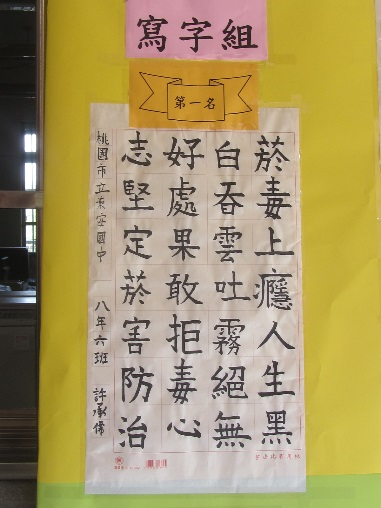 寫字組
第一名
菸毒上癮人生黑
白吞雲吐霧絕無
好處果敢拒毒心
志堅定菸害防治
桃園市立東安國中 八年六班 許承偉